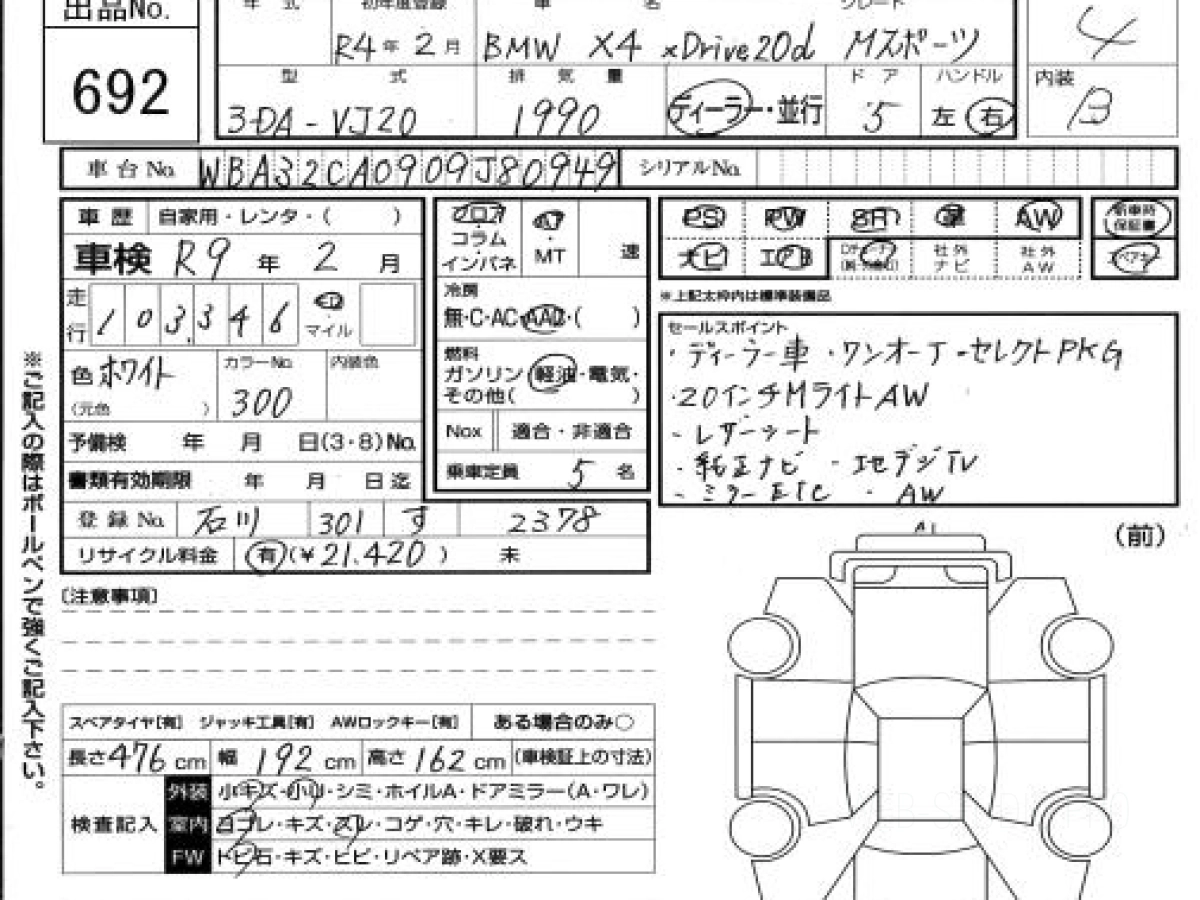 出品No.
692
年 式 初年度登録 車 名 グレード
R4年 2月 BMW X4 xDrive20d Mスポーツ
4
型 式 排 気 量 ドア ハンドル
3DA-VJ20 1990 ディーラー・並行 5 左 右
内装
B
車台No. WBA32CA0909J80949 シリアルNo.
車歴 自家用・レンタ・( )
車検 R9年 2月
走行 103,346 マイル
色 ホワイト
(元色 )
カラーNo.
300
内装色
予備検 年 月 日(3・8)No.
書類有効期限 年 月 日迄
登録No. 石川 301 す 2378
リサイクル料金 有(¥21,420) 未
フロア
コラム
インパネ
AT
・
MT
速
冷房
無・C・AC・AAC・( )
燃料
ガソリン・軽油・電気・
その他( )
Nox 適合・非適合
乗車定員 5 名
PS PW SR 革 AW
ナビ エアB
社外
ナビ
社外
AW
新車時
保証書
スペアキー
※上記太枠内は標準装備品
セールスポイント
・ディーラー車 ・ワンオーナ ・セレクトPKG
・20インチMライトAW
・レザーシート
・純正ナビ ・地デジTV
・ミラーETC ・AW
※ご記入の際はボールペンで強くご記入下さい。
〔注意事項〕
(前)
A1
スペアタイヤ[有] ジャッキ工具[有] AWロックキー[有] ある場合のみ○
長さ476cm 幅192cm 高さ162cm (車検証上の寸法)
検査記入
外装 小キズ・小凹・シミ・ホイルA・ドアミラー(A・ワレ)
室内 ヨゴレ・キズ・スレ・コゲ・穴・キレ・破れ・ウキ
FW トビ石・キズ・ヒビ・リペア跡・X要ス